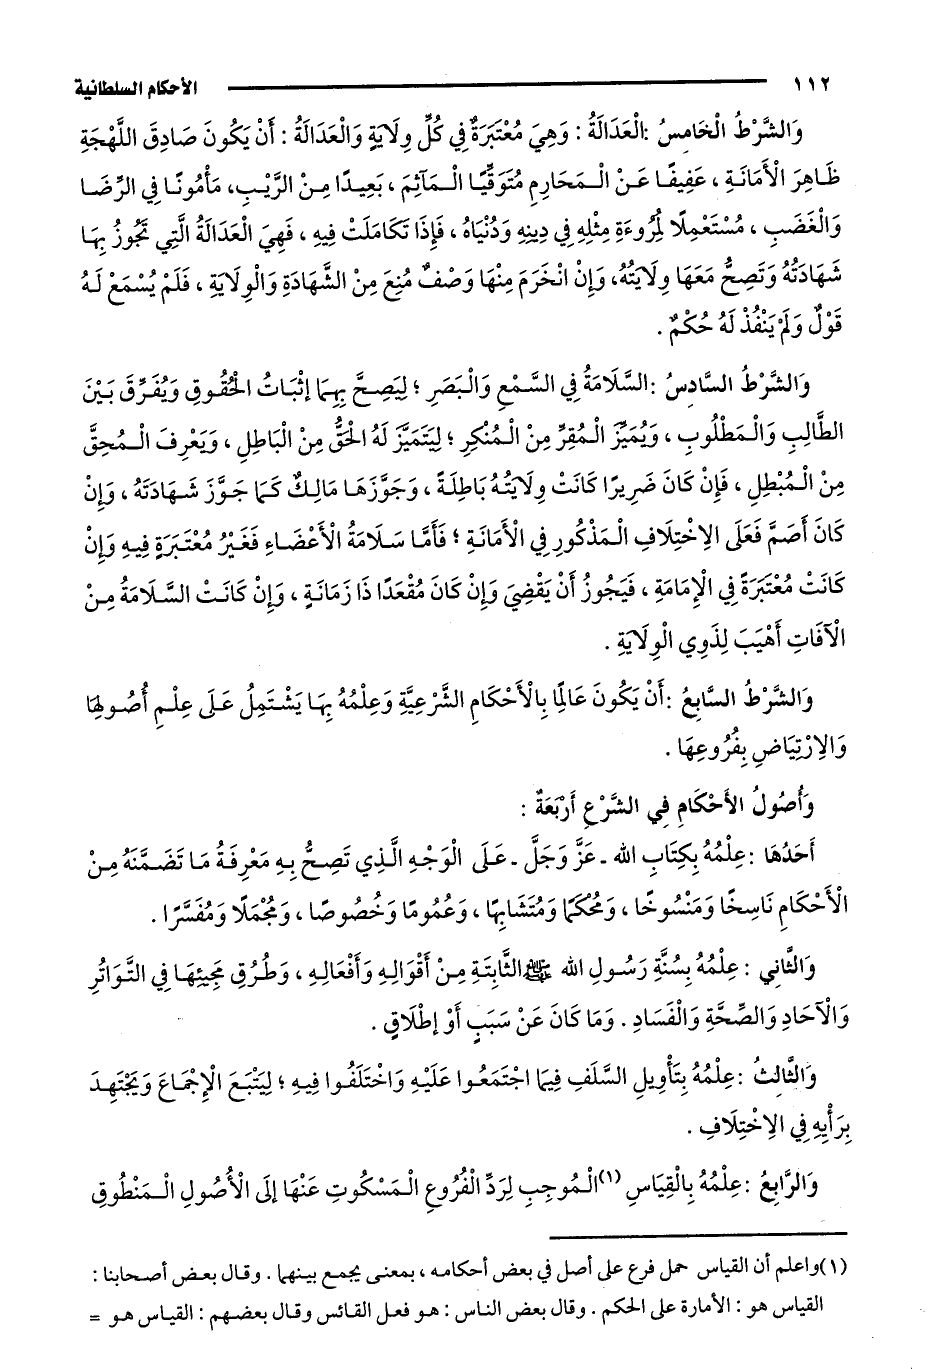 ١١٢ الأحكام السلطانية
وَالشَّرْطُ الْخَامِسُ :الْعَدَالَةُ : وَهِيَ مُعْتَبَرَةٌ فِي كُلِّ وِلَايَةٍ وَالْعَدَالَةُ : أَنْ يَكُونَ صَادِقَ اللَّهْجَةِ
ظَاهِرَ الْأَمَانَةِ ، عَفِيفًا عَنْ الْمَحَارِمِ مُتَوَقِّيًا الْمَآثِمَ ، بَعِيدًا مِنْ الرَّيْبِ، مَأْمُونًا فِي الرِّضَا
وَالْغَضَبِ ، مُسْتَعْمِلًا لِمُرُوءَةِ مِثْلِهِ فِي دِينِهِ وَدُنْيَاهُ ، فَإِذَا تَكَامَلَتْ فِيهِ ، فَهِيَ الْعَدَالَةُ الَّتِي تَجُوزُ بِهَا
شَهَادَتُهُ وَتَصِحُّ مَعَهَا وِلَايَتُهُ، وَإِنْ انْخَرَمَ مِنْهَا وَصْفٌ مُنِعَ مِنْ الشَّهَادَةِ وَالْوِلَايَةِ ، فَلَمْ يُسْمَعْ لَهُ
قَوْلٌ وَلَمْ يَنْفُذْ لَهُ حُكْمٌ .
وَالشَّرْطُ السَّادِسُ :السَّلَامَةُ فِي السَّمْعِ وَالْبَصَرِ ؛ لِيَصِحَّ بِهِمَا إثْبَاتُ الْحُقُوقِ وَيُفَرِّقَ بَيْنَ
الطَّالِبِ وَالْمَطْلُوبِ ، وَيُمَيِّزَ الْمُقِرَّ مِنْ الْمُنْكِرِ ؛ لِيَتَمَيَّزَ لَهُ الْحَقُّ مِنْ الْبَاطِلِ ، وَيَعْرِفَ الْمُحِقَّ
مِنْ الْمُبْطِلِ ، فَإِنْ كَانَ ضَرِيرًا كَانَتْ وِلَايَتُهُ بَاطِلَةً ، وَجَوَّزَهَا مَالِكٌ كَمَا جَوَّزَ شَهَادَتَهُ ، وَإِنْ
كَانَ أَصَمَّ فَعَلَى الِاخْتِلَافِ الْمَذْكُورِ فِي الْأَمَانَةِ ؛ فَأَمَّا سَلَامَةُ الْأَعْضَاءِ فَغَيْرُ مُعْتَبَرَةٍ فِيهِ وَإِنْ
كَانَتْ مُعْتَبَرَةً فِي الْإِمَامَةِ ، فَيَجُوزُ أَنْ يَقْضِيَ وَإِنْ كَانَ مُقْعَدًا ذَا زَمَانَةٍ ، وَإِنْ كَانَتْ السَّلَامَةُ مِنْ
الْآفَاتِ أَهْيَبَ لِذَوِي الْوِلَايَةِ .
وَالشَّرْطُ السَّابِعُ :أَنْ يَكُونَ عَالِمًا بِالْأَحْكَامِ الشَّرْعِيَّةِ وَعِلْمُهُ بِهَا يَشْتَمِلُ عَلَى عِلْمِ أُصُولِهَا
وَالِارْتِيَاضِ بِفُرُوعِهَا .
وَأُصُولُ الْأَحْكَامِ فِي الشَّرْعِ أَرْبَعَةٌ :
أَحَدُهَا :عِلْمُهُ بِكِتَابِ الله ـ عَزَّ وَجَلَّ ـ عَلَى الْوَجْهِ الَّذِي تَصِحُّ بِهِ مَعْرِفَةُ مَا تَضَمَّنَهُ مِنْ
الْأَحْكَامِ نَاسِخًا وَمَنْسُوخًا ، وَمُحْكَمًا وَمُتَشَابِهًا ، وَعُمُومًا وَخُصُوصًا ، وَمُجْمَلًا وَمُفَسَّرًا .
وَالثَّانِي : عِلْمُهُ بِسُنَّةِ رَسُولِ الله ﷺ الثَّابِتَةِ مِنْ أَقْوَالِهِ وَأَفْعَالِهِ ، وَطُرُقِ مَجِيئِهَا فِي التَّوَاتُرِ
وَالْآحَادِ وَالصِّحَّةِ وَالْفَسَادِ . وَمَا كَانَ عَنْ سَبَبٍ أَوْ إطْلَاقٍ .
وَالثَّالِثُ :عِلْمُهُ بِتَأْوِيلِ السَّلَفِ فِيمَا اجْتَمَعُوا عَلَيْهِ وَاخْتَلَفُوا فِيهِ ؛ لِيَتْبَعَ الْإِجْمَاعَ وَيَجْتَهِدَ
بِرَأْيِهِ فِي الِاخْتِلَافِ .
وَالرَّابِعُ :عِلْمُهُ بِالْقِيَاسِ (١)الْمُوجِبِ لِرَدِّ الْفُرُوعِ الْمَسْكُوتِ عَنْهَا إلَى الْأُصُولِ الْمَنْطُوقِ
(١)واعلم أن القياس حمل فرع على أصل في بعض أحكامه ، بمعنى يجمع بينهما . وقال بعض أصحابنا :
القياس هو : الأمارة على الحكم . وقال بعض الناس : هو فعل القائس وقال بعضهم : القياس هو =